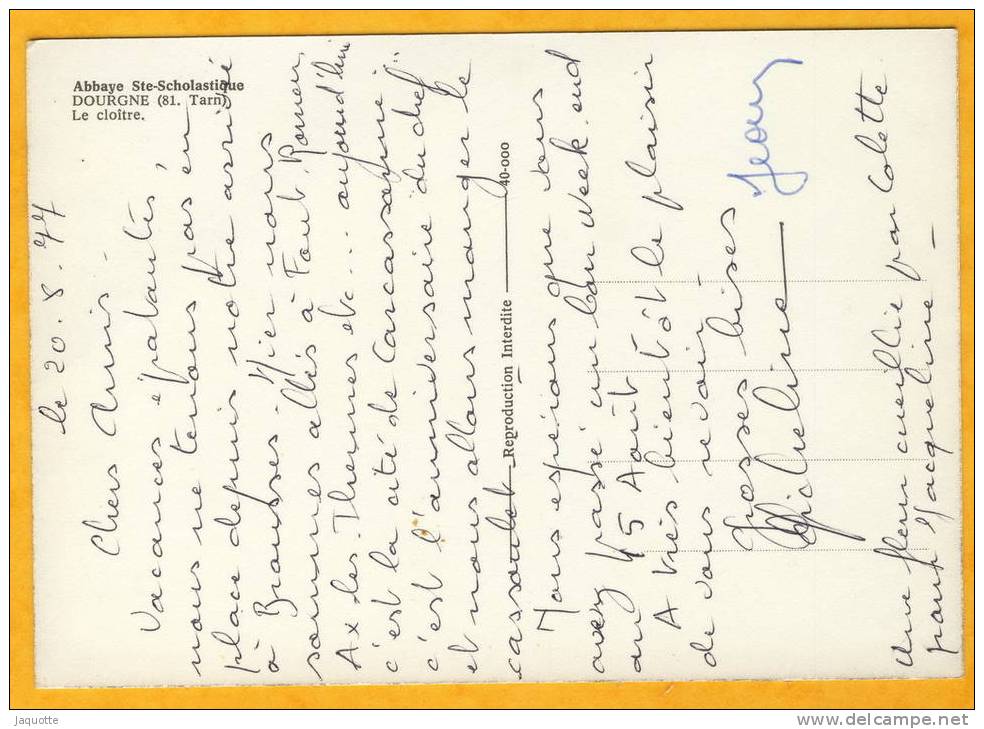 Abbaye Ste-Scholastique
DOURGNE (81. Tarn)
Le cloître.
le 20.8.77
Chers Amis
Vacances épatantes,
nous ne tenons pas en
place depuis notre arrivée
à Hier nous
sommes allés à Font Romeu,
Ax les Thermes etc... aujourd'hui
c'est la cité de Carcassonne
c'est l'anniversaire "du chef"
et nous allons manger le
cassoulet
Reproduction Interdite
40-000
Nous espérons que vous
avez passé un bon week-end
au 15 Août
A très bientôt le plaisir
de vous revoir
Grosses bises
Micheline
Jean
Une fleur cueillie par Colette
pour Jacqueline -
Jaquotte
delcampe.net